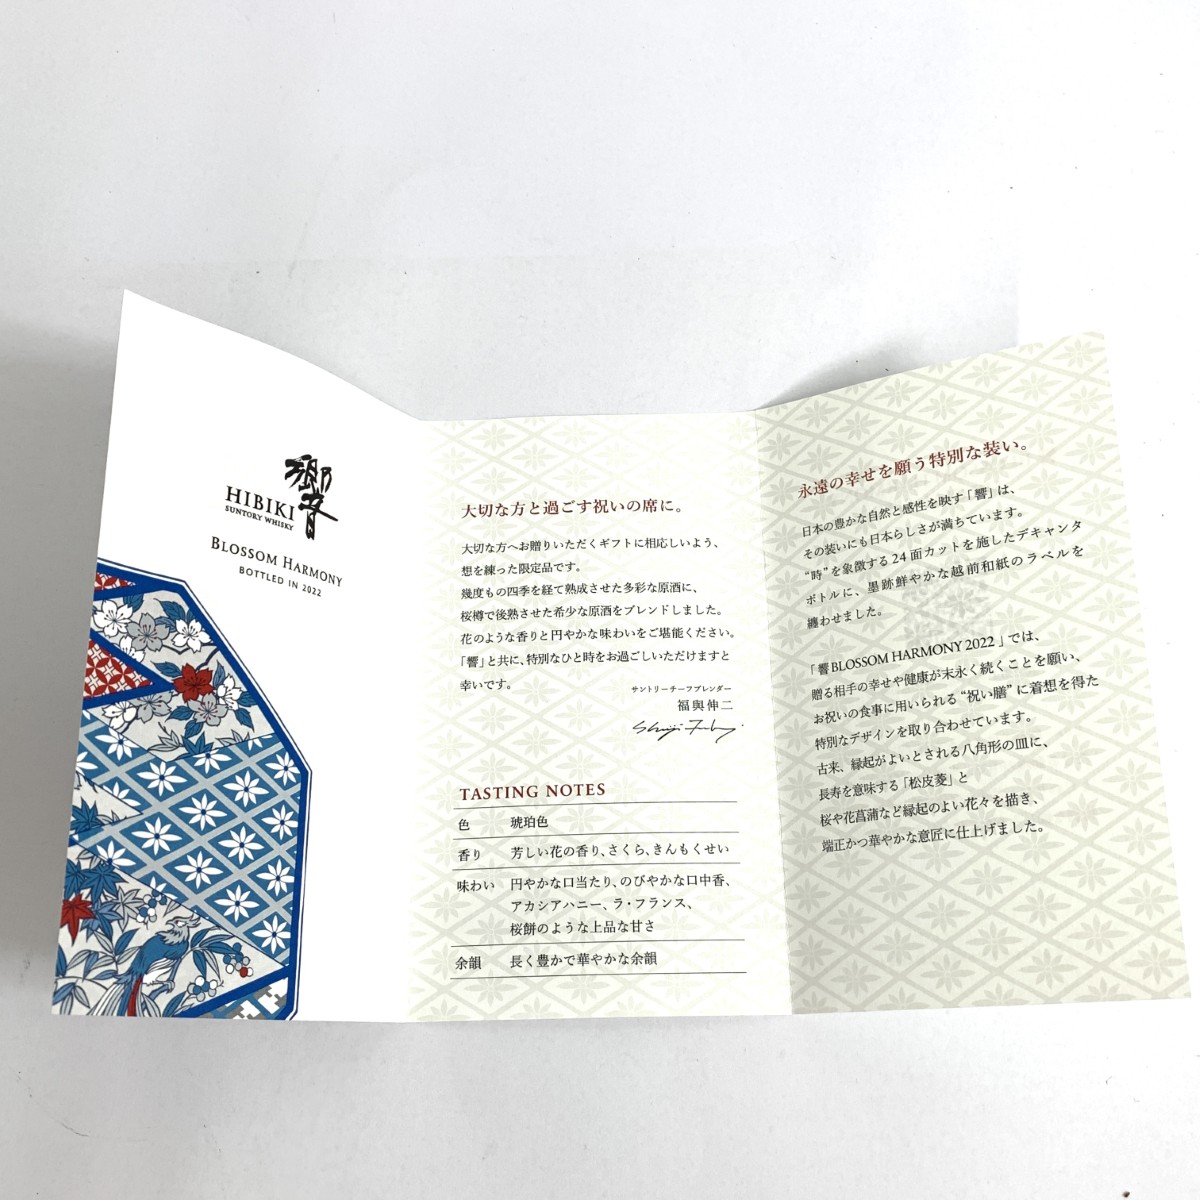 響
HIBIKI
SUNTORY WHISKY
BLOSSOM HARMONY
BOTTLED IN 2022
大切な方と過ごす祝いの席に。
大切な方へお贈りいただくギフトに相応しいよう、
想を練った限定品です。
幾度もの四季を経て熟成させた多彩な原酒に、
桜樽で後熟させた希少な原酒をブレンドしました。
花のような香りと円やかな味わいをご堪能ください。
「響」と共に、特別なひと時をお過ごしいただけますと
幸いです。
サントリーチーフブレンダー
福與伸二
TASTING NOTES
色 琥珀色
香り 芳しい花の香り、さくら、きんもくせい
味わい 円やかな口当たり、のびやかな口中香、
アカシアハニー、ラ・フランス、
桜餅のような上品な甘さ
余韻 長く豊かで華やかな余韻
永遠の幸せを願う特別な装い。
日本の豊かな自然と感性を映す「響」は、
その装いにも日本らしさが満ちています。
“時”を象徴する24面カットを施したデキャンタ
ボトルに、墨跡鮮やかな越前和紙のラベルを
纏わせました。
「響BLOSSOM HARMONY 2022」では、
贈る相手の幸せや健康が末永く続くことを願い、
お祝いの食事に用いられる“祝い膳”に着想を得た
特別なデザインを取り合わせています。
古来、縁起がよいとされる八角形の皿に、
長寿を意味する「松皮菱」と
桜や花菖蒲など縁起のよい花々を描き、
端正かつ華やかな意匠に仕上げました。